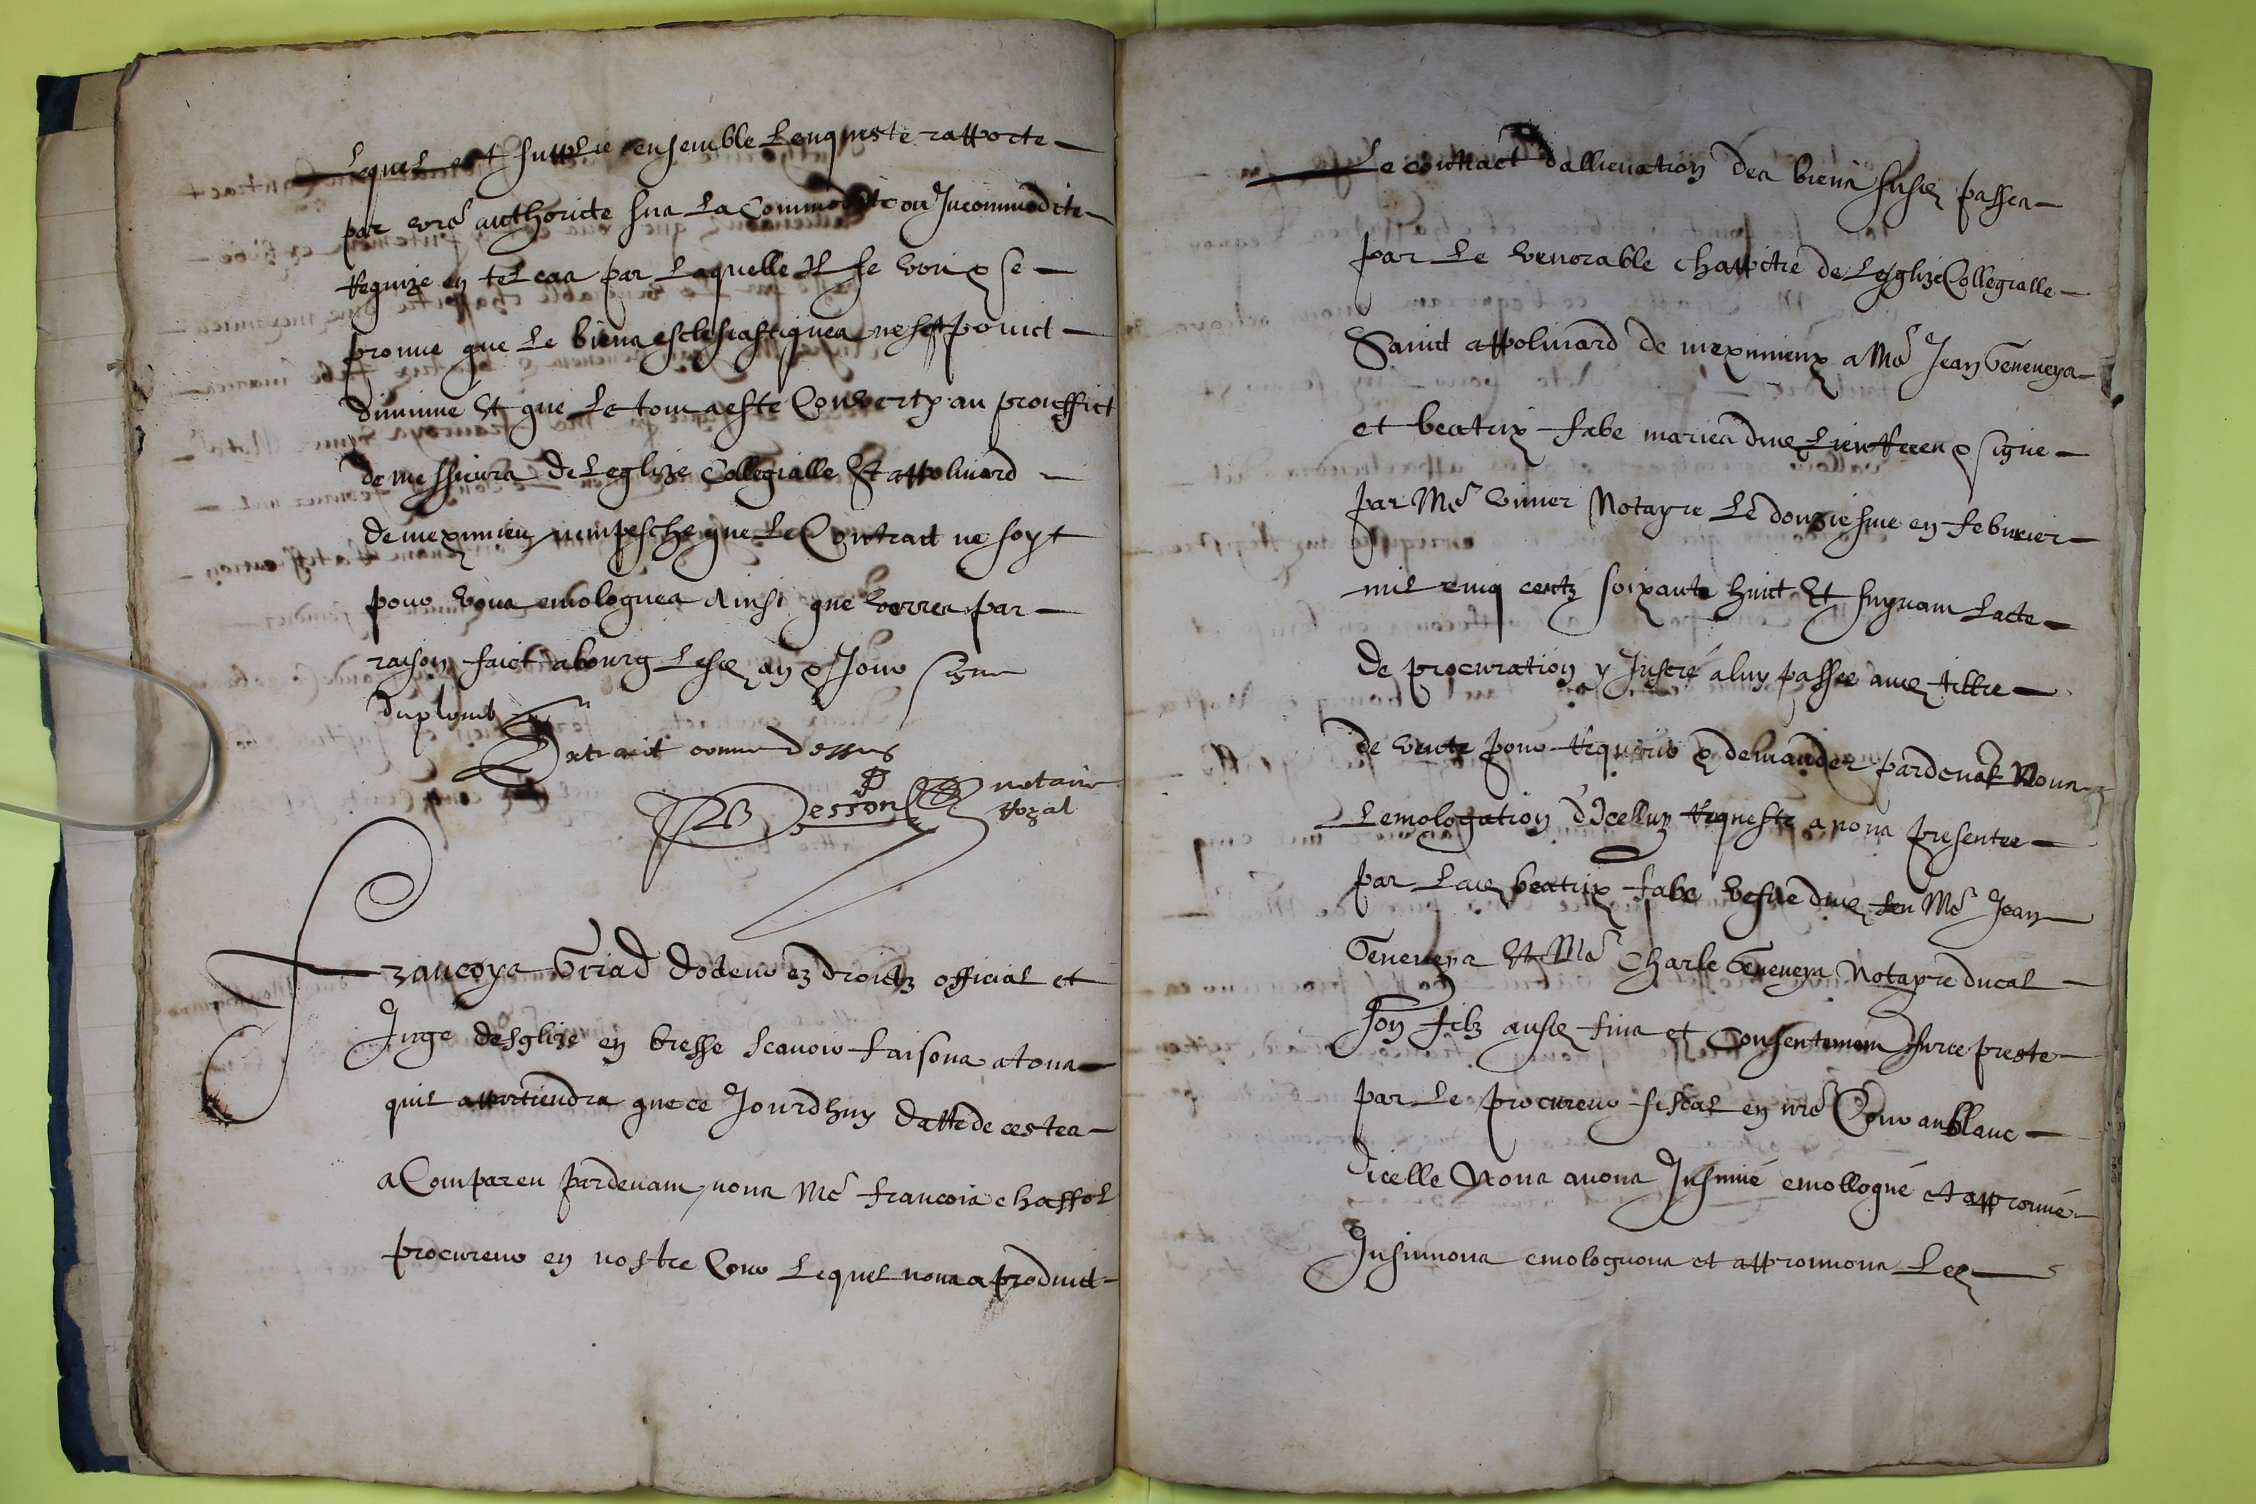 Lequel est supplié ensemble Lenqueste rapporte
par vre authorité sur La Commodité ou Incommodite
Requize en tel cas par Laquelle Il se
prouve que Le biens esclesiastiques ne sest poinct
diminue Et que Le tout a esté Converty au prouffict
de messieurs de Leglize Collegialle St appolinard
de meximieu nempesche que Le Contract ne soyt
pour vous emologues Ainsi que verres par
raison faict a bourg Les an & Jour signe
duplomb
Extraict comme dessus
notaire
Royal
Francoys Griad docteur ez droictz official et
Juge desglize en bresse scavoir faisons a tous
quil appartiendra que ce Jourdhuy datte de cestes
a Comparu pardevant nous Me francois chassot
procureur en nostre Cour Lequel nous a produict
Le contract dallienation des biens passes
par Le venerable chappitre de Leglize Collegialle
Sainct appolinard de meximieux a Me Jean Geneneys
et beatrix fabe maries signe
par Me vivier Notayre Le douziesme en febvrier
mil cinq centz soixante huict Et suyvant Lacte
de procuration y Inseré a luy passée avec tiltre
de vente pour Requerir & demander pardevant Nous
Lemologation dIcelluy Requeste a nous presentee
par beatrix fabe vefve feu Me Jean
Geneneys Et Me Charle Geneneys Notayre ducal
son filz fins et Consentement surce preste
par Le procureur fiscal en nre Cour au blanc
dicelle Nous avons Insinué emollogué et approuvé
Insinuons emologuons et approuvons